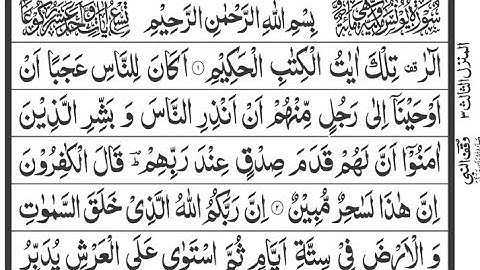 بِسْمِ اللهِ الرَّحْمٰنِ الرَّحِيْمِ
الٓرٰ قف تِلْكَ اٰيٰتُ الْكِتٰبِ الْحَكِيْمِ ۝۱ اَكَانَ لِلنَّاسِ عَجَبًا اَنْ
اَوْحَيْنَاۤ اِلٰى رَجُلٍ مِّنْهُمْ اَنْ اَنْذِرِ النَّاسَ وَ بَشِّرِ الَّذِيْنَ
اٰمَنُوْۤا اَنَّ لَهُمْ قَدَمَ صِدْقٍ عِنْدَ رَبِّهِمْ ؔ قَالَ الْكٰفِرُوْنَ
اِنَّ هٰذَا لَسٰحِرٌ مُّبِيْنٌ ۝۲ اِنَّ رَبَّكُمُ اللهُ الَّذِيْ خَلَقَ السَّمٰوٰتِ
وَ الْاَرْضَ فِيْ سِتَّةِ اَيَّامٍ ثُمَّ اسْتَوٰى عَلَى الْعَرْشِ يُدَبِّرُ
المنزل الثالث ۳
وقف النبی